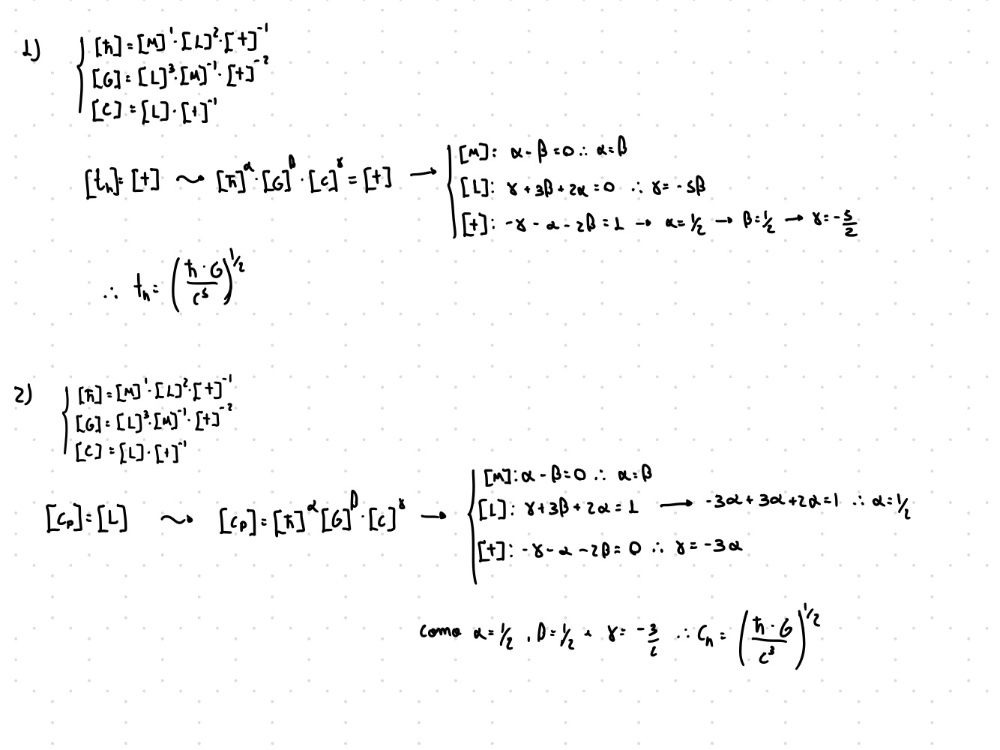 1) [ħ]=[M]¹·[L]²·[t]⁻¹
[G]=[L]³·[M]⁻¹·[t]⁻²
[C]=[L]·[t]⁻¹
[tₕ]=[t] ~ [ħ]^α·[G]^β·[c]^γ=[t] → [M]: α-β=0 ∴ α=β
[L]: γ+3β+2α=0 ∴ γ=-5β
[t]: -γ-α-2β=1 → α=1/2 → β=1/2 → γ=-5/2
∴ tₕ=(ħ·G/c⁵)^1/2
2) [ħ]=[M]¹·[L]²·[t]⁻¹
[G]=[L]³·[M]⁻¹·[t]⁻²
[C]=[L]·[t]⁻¹
[M]: α-β=0 ∴ α=β
[Cₚ]=[L] ~ [Cₚ]=[ħ]^α[G]^β·[c]^γ → [L]: γ+3β+2α=1 → -3α+3α+2α=1 ∴ α=1/2
[t]: -γ-α-2β=0 ∴ γ=-3α
como α=1/2, β=1/2 γ=-3/2 ∴ Cₕ=(ħ·G/c³)^1/2